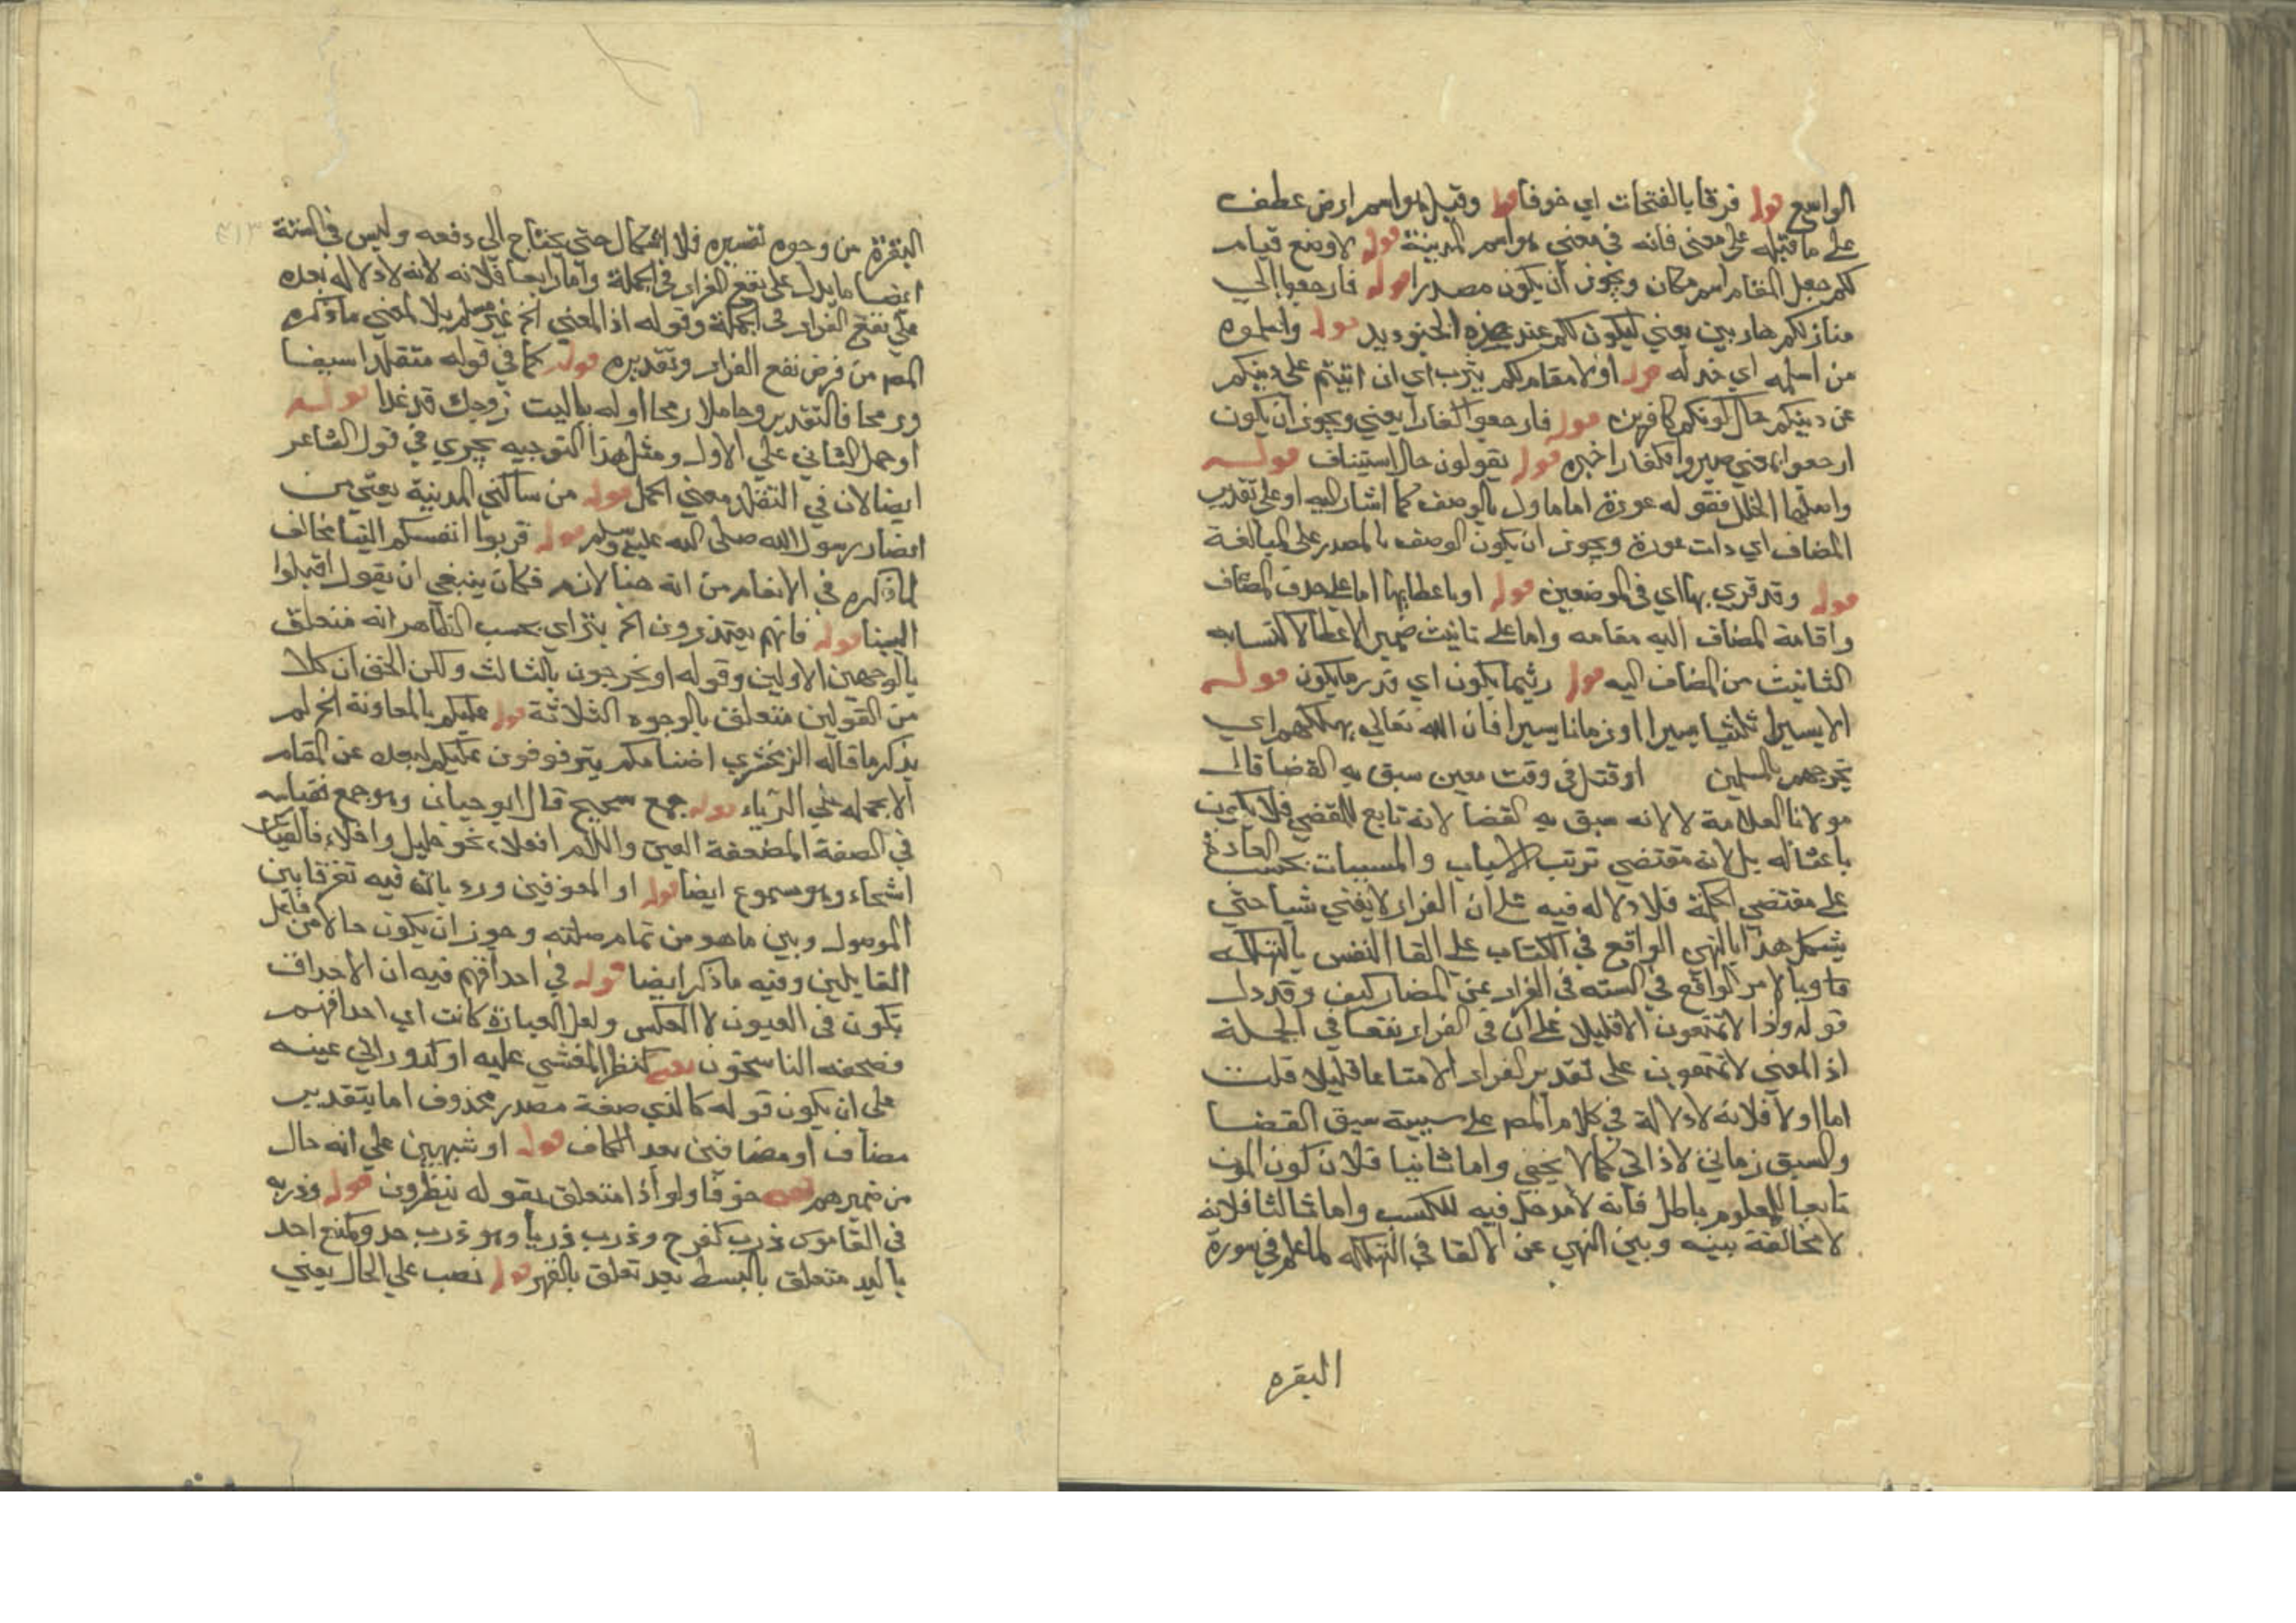 الواسع قوله فرقا بالفتحات اي خوفا قوله وقيل هو اسم ارض عطف
على ما قبله على معنى فانه في معنى هو اسم المدينة قوله لا وضع قيام
لكم جعل المقام اسم مكان ويجوز ان يكون مصدرا قوله فارجعوا الي
منازلكم هاربين يعني ليكون لكم عند هذه الجنود يد قوله واسلموه
من اسلمه اي خذله قوله اولا مقام لكم بيثرب اي ان اتيتم على دينكم
عن دينكم حال كونكم كافرين قوله فارجعوا كفارا يعني ويجوز ان يكون
ارجعوا بمعني صيروا وكفارا خبره قوله يقولون حال استيناف قوله
واصلها الخلل فقوله عورة اما ماول بالوصف كما اشار اليه او على تقدير
المضاف اي ذات عورة ويجوز ان يكون الوصف بالمصدر على المبالغة
قوله وقد قري بها اي في الموضعين قوله او باعطايها اما على حذف المضاف
واقامة المضاف اليه مقامه واما على تانيث ضمير الاعطا لاكتسابه
التانيث من المضاف اليه قوله ريثما يكون اي قدر ما يكون قوله
الا يسيرا تلبثا يسيرا او زمانا يسيرا فان الله تعالي يهلكهم اي
يخرجهم بالمسلمين او قتل في وقت معين سبق به القضا قال
مولانا العلامة لا لانه سبق به القضا لانه تابع للمقضي فلا يكون
باعثا له بل لانه مقتضي ترتب الاسباب والمسببات بحسب العادة
على مقتضي الحكمة فلا دلالة فيه على ان الفرار لا يغني شيا حتي
يشكل هذا بالنهي الواقع في الكتاب على القا النفس بالتهلكه
وبالامر الواقع في السنه في الفرار عن المضار كيف وقد دل
قوله واذا لا تمتعون الا قليلا على ان في الفرار نفعا في الجملة
اذ المعني لا تمتعون على تقدير الفرار الا متاعا قليلا قلت
اما اولا فلانه لا دلالة في كلام المص على سببية سبق القضا
والسبق زماني لا ذاتي كما لا يخفي واما ثانيا فلان كون الموت
تابعا للمعلوم باطل فانه لا مدخل فيه للكسب واما ثالثا فلانه
لا مخالفة بينه وبين النهي عن الالقا في التهلكه لما علم في سورة
البقره
البقرة من وجوه تفسيره فلا اشكال حتي يحتاج الي دفعه وليس في السنة
ايضا ما يدل على نفع الفرار في الجملة واما رابعا فلانه لانه لا دلاله بعده
على نفع الفرار في الجملة وقوله اذ المعني الخ غير مسلم بل المعني ما ذكره
المص من فرض نفع الفرار وتقديره قوله كما في قوله متقلدا سيفا
ورمحا فالتقدير وحاملا رمحا اوله ياليت زوجك قد غدا قوله
او حمل الثاني على الاول ومثل هذا التوجيه يجري في قول الشاعر
ايضا لان في التقلد معني الحمل قوله من ساكني المدينة يعني من
انصار رسول الله صلى الله عليه وسلم قوله قربوا انفسكم الينا مخالف
لما ذكره في الانعام من انه هنا لازم فكان ينبغي ان يقول اقبلوا
الينا قوله فانهم يعتذرون الخ يتراي بحسب الظاهر انه متعلق
بالوجهين الاولين وقوله او يخرجون بالثالث ولكن الحق ان كلا
من القولين متعلق بالوجوه الثلاثة قوله عليكم بالمعاونة الخ لم
يذكر ما قاله الزمخشري اضنا بكم يترفرفون عليكم لبعده عن المقام
الا بحمله على الرياء قوله جمع شحيح قال ابو حيان وهو جمع نقياسه
في الصفة المضعفة العين واللام افعلاء نحو خليل واخلاء فالقياس
اشحاء وهو مسموع ايضا قوله او المعوقين ورد بان فيه تفرقا بين
الموصول وبين ما هو من تمام صلته وجوز ان يكون حالا من فاعل
القايلين وفيه ما ذكر ايضا قوله في احداقهم فيه ان الاحداق
يكون في العيون لا العكس ولعل العبارة كانت اي احداقهم
فصحفه الناسخون قوله كنظر المغشي عليه او كدوران عينه
على ان يكون قوله كالذي صفة مصدر محذوف اما بتقدير
مضاف او مضافين بعد الكاف قوله او مشبهين على انه حال
من ضميرهم قوله خوفا ولواذا متعلق بقوله ينظرون قوله وذربه
في القاموس ذرب كفرح وذرب ذربا وهو ذرب حد وكمنع احد
باليد متعلق بالبسط بعد تعلق بالقهر قوله نصب على الحال يعني